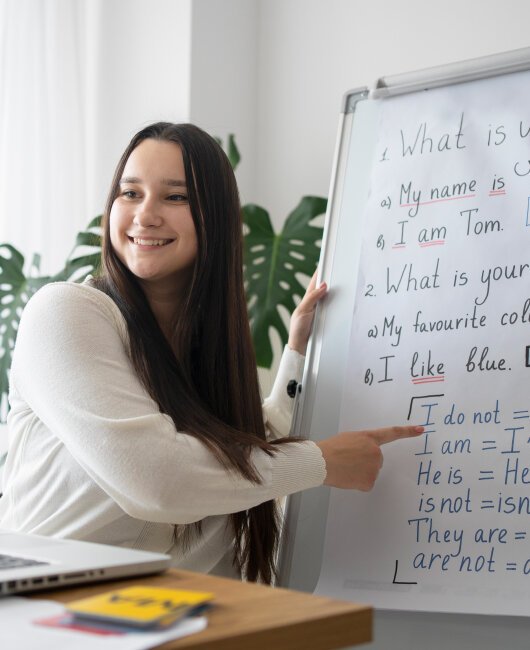 1. What is
a) My name is
b) I am Tom.
2. What is your
a) My favourite
b) I like blue.
I do not =
I am = I
He is = He
is not = isn
They are =
are not = a